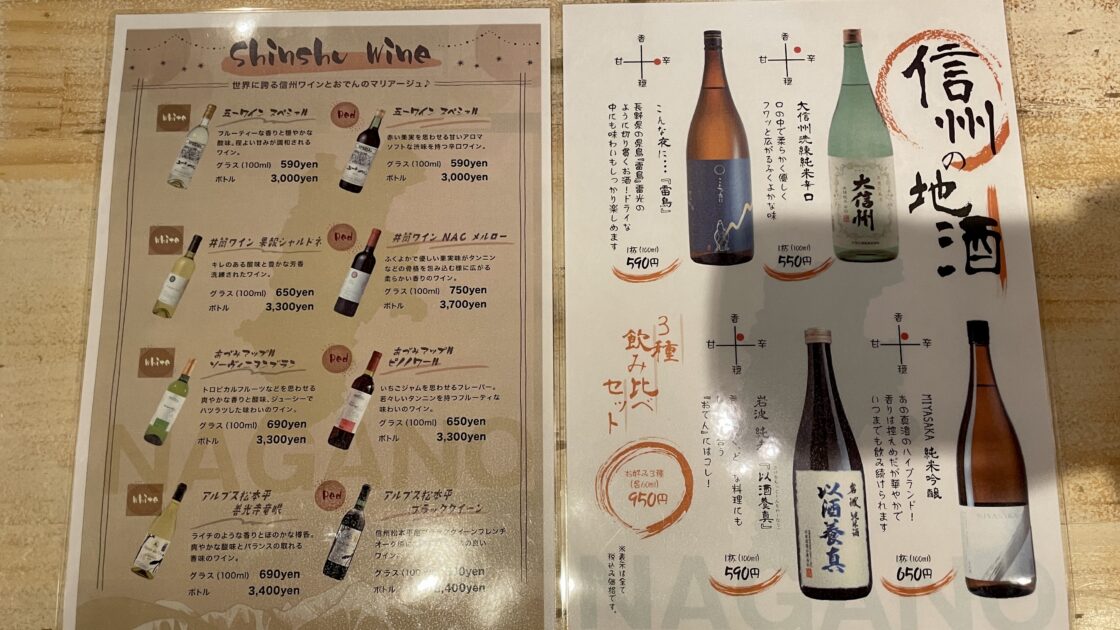 Shinshu Wine
世界に誇る信州ワインとおでんのマリアージュ♪
White
五一ワイン スペシャル
フルーティーな香りと穏やかな
酸味。程よい甘みが調和される
ワイン。
グラス(100ml) 590yen
ボトル 3,000yen
Red
五一ワイン スペシャル
赤い果実を思わせる甘いアロマ
ソフトな渋味を持つ辛口ワイン。
グラス(100ml) 590yen
ボトル 3,000yen
White
井筒ワイン 果報シャルドネ
キレのある酸味と豊かな芳香
洗練されたワイン。
グラス(100ml) 650yen
ボトル 3,300yen
Red
井筒ワイン NAC メルロー
ふくよかで優しい果実味がタンニン
などの骨格を包み込む様に広がる
柔らかい香りのワイン。
グラス(100ml) 750yen
ボトル 3,700yen
White
あづみアップル
ソーヴィニヨンブラン
トロピカルフルーツなどを思わせる
爽やかな香りと酸味、ジューシーで
ハツラツした味わいのワイン。
グラス(100ml) 690yen
ボトル 3,300yen
Red
あづみアップル
ピノノワール
いちごジャムを思わせるフレーバー。
若々しいタンニンを持つフルーティな
味わいのワイン。
グラス(100ml) 650yen
ボトル 3,300yen
White
アルプス松本平
善光寺竜眼
ライチのような香りとほのかな樽香。
爽やかな酸味とバランスの取れる
香味のワイン。
グラス(100ml) 690yen
ボトル 3,400yen
Red
アルプス松本平
ブラッククイーン
信州松本平産ブラッククイーンフレンチ
オーク
ワイン。
グラス(100ml)
ボトル
NAGANO
信州の地酒
香
甘 辛
穏
大信州洗練純米辛口
口の中で柔らかく優しく
フワッと広がるふくよかな味
1杯(100ml)
550円
大信州
香
甘 辛
穏
こんな夜に…『雷鳥』
長野県の県鳥『雷鳥』雷光の
ように切り裂くお酒!ドライな
中にも味わいもしっかり楽しめます
1杯(100ml)
590円
香
甘 辛
穏
MIYASAKA 純米吟醸
あの真澄のハイブランド!
香りは控えめだが華やかで
いつまでも飲み続けられます
1杯(100ml)
650円
MIYASAKA
香
甘 辛
穏
岩波 純米『以酒養真』
どな料理にも
合う
『おでん』にはコレ!
1杯(100ml)
590円
岩波 純米酒
以酒養真
3種
飲み比べ
セット
お好み3種
(各60ml)
950円
※表示は全て
税込み価格です。
NAGANO